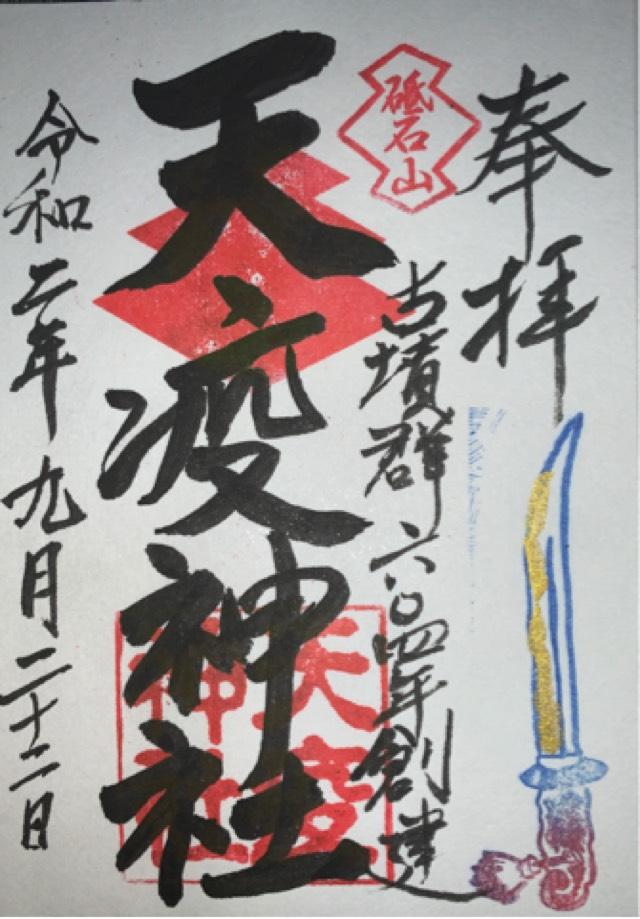 奉拝
砥石山
古墳群六〇四年創建
天疫神社
天疫神社
令和二年九月二十二日